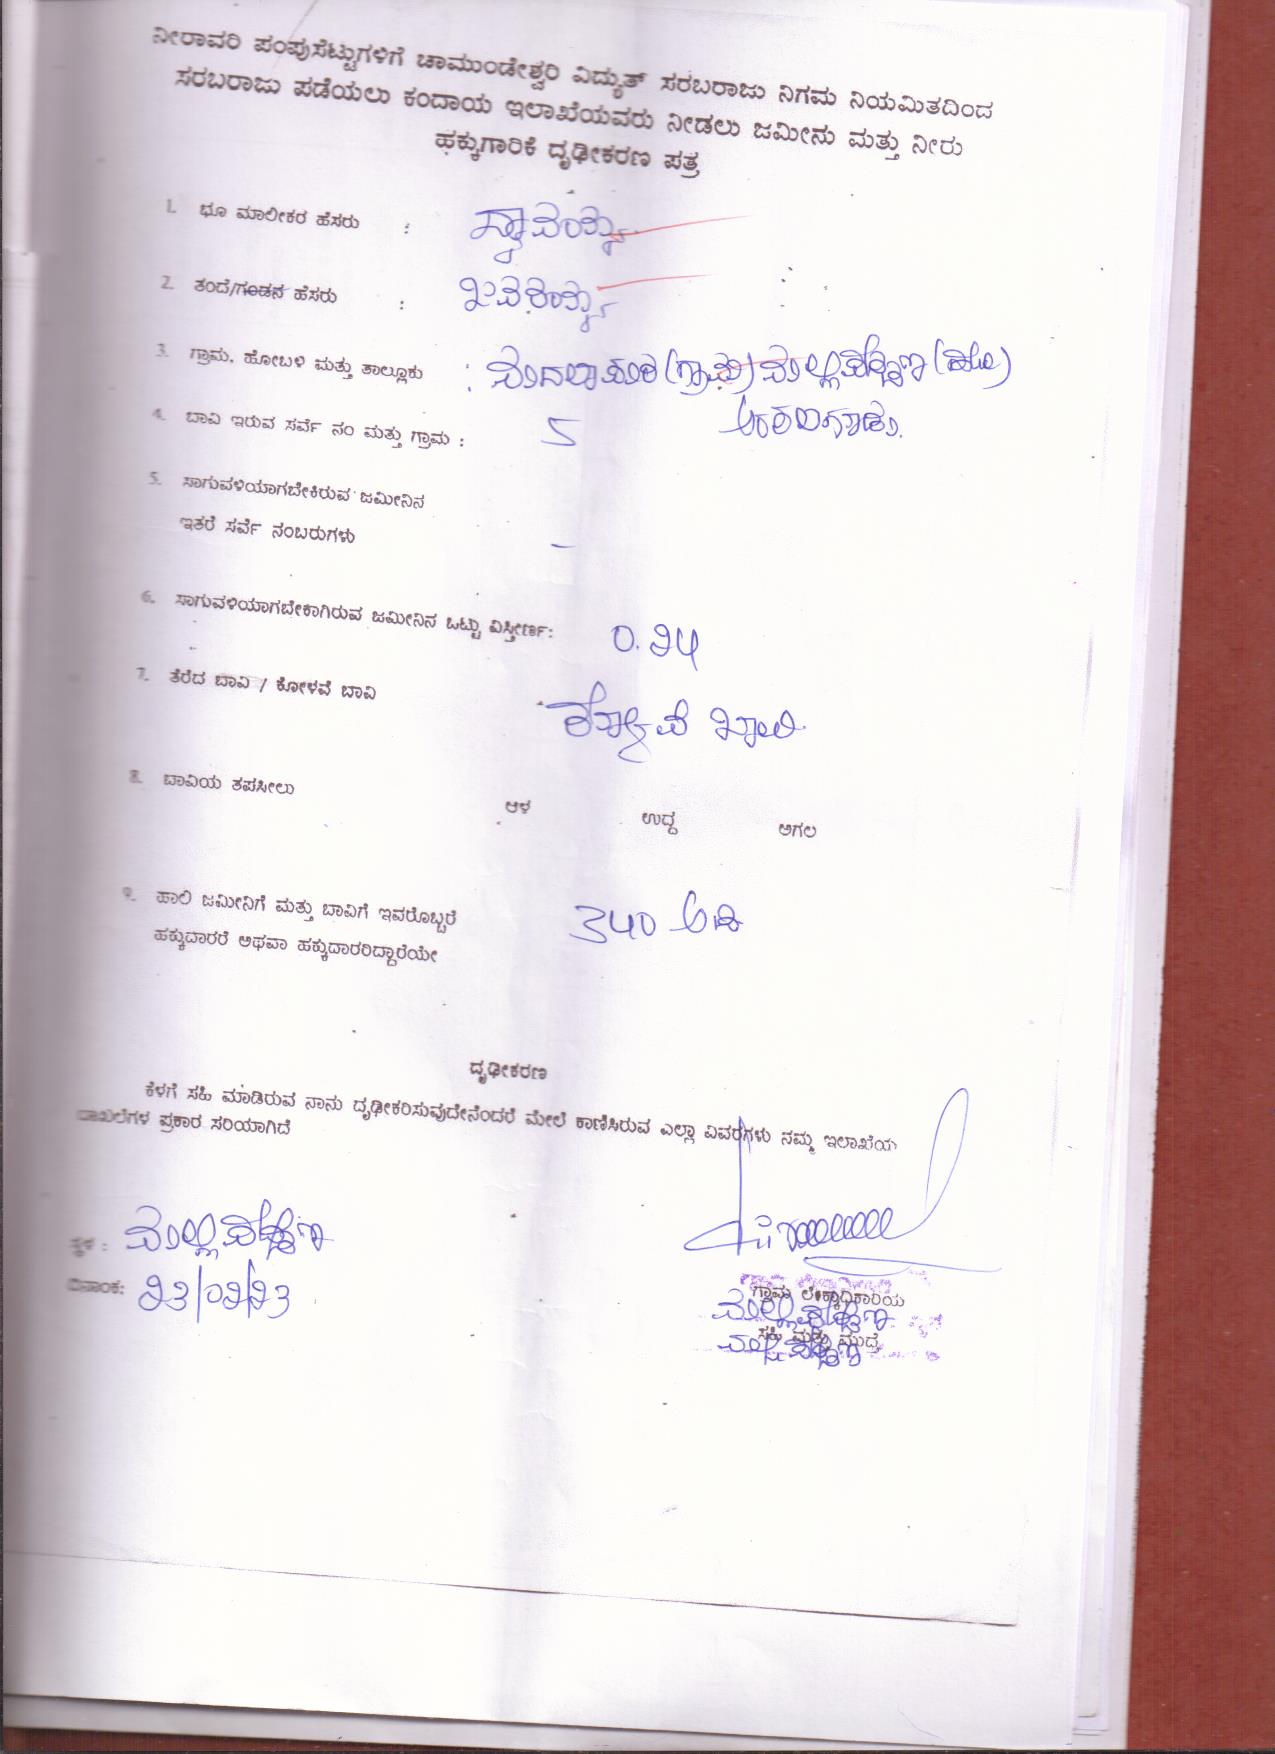 ನೀರಾವರಿ ಪಂಪುಸೆಟ್ಟುಗಳಿಗೆ ಚಾಮುಂಡೇಶ್ವರಿ ವಿದ್ಯುತ್ ಸರಬರಾಜು ನಿಗಮ ನಿಯಮಿತದಿಂದ
ಸರಬರಾಜು ಪಡೆಯಲು ಕಂದಾಯ ಇಲಾಖೆಯವರು ನೀಡಲು ಜಮೀನು ಮತ್ತು ನೀರು
ಹಕ್ಕುಗಾರಿಕೆ ದೃಢೀಕರಣ ಪತ್ರ
1. ಭೂ ಮಾಲೀಕರ ಹೆಸರು :
2. ತಂದೆ/ಗಂಡನ ಹೆಸರು :
3. ಗ್ರಾಮ, ಹೋಬಳಿ ಮತ್ತು ತಾಲ್ಲೂಕು : (ಗ್ರಾಮ) ಮಲ್ಲಪಟ್ಟಣ (ಹೋ)
ಅರಕಲಗೂಡು.
4. ಬಾವಿ ಇರುವ ಸರ್ವೆ ನಂ ಮತ್ತು ಗ್ರಾಮ : 5
5. ಸಾಗುವಳಿಯಾಗಬೇಕಿರುವ ಜಮೀನಿನ
ಇತರೆ ಸರ್ವೆ ನಂಬರುಗಳು -
6. ಸಾಗುವಳಿಯಾಗಬೇಕಾಗಿರುವ ಜಮೀನಿನ ಒಟ್ಟು ವಿಸ್ತೀರ್ಣ: 0.24
7. ತೆರೆದ ಬಾವಿ / ಕೋಳವೆ ಬಾವಿ ಕೊಳವೆ ಬಾವಿ
8. ಬಾವಿಯ ತಪಸೀಲು ಆಳ ಉದ್ದ ಅಗಲ
9. ಹಾಲಿ ಜಮೀನಿಗೆ ಮತ್ತು ಬಾವಿಗೆ ಇವರೊಬ್ಬರೆ 340 ಅಡಿ
ಹಕ್ಕುದಾರರೆ ಅಥವಾ ಹಕ್ಕುದಾರರಿದ್ದಾರೆಯೇ
ದೃಢೀಕರಣ
ಕೆಳಗೆ ಸಹಿ ಮಾಡಿರುವ ನಾನು ದೃಢೀಕರಿಸುವುದೇನೆಂದರೆ ಮೇಲೆ ಕಾಣಿಸಿರುವ ಎಲ್ಲಾ ವಿವರಗಳು ನಮ್ಮ ಇಲಾಖೆಯ
ದಾಖಲೆಗಳ ಪ್ರಕಾರ ಸರಿಯಾಗಿದೆ
ಸ್ಥಳ : ಮಲ್ಲಪಟ್ಟಣ
ದಿನಾಂಕ: 23/02/23
ಗ್ರಾಮ ಲೆಕ್ಕಾಧಿಕಾರಿಯ
ಮಲ್ಲಪಟ್ಟಣ
ಸಹಿ ಮತ್ತು ಮುದ್ರೆ